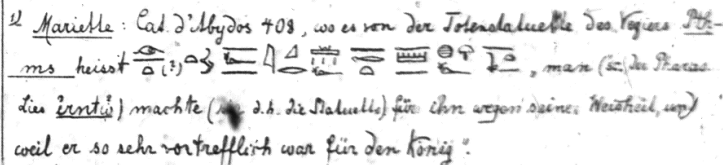 1) Mariette: Cat. d'Abydos 408, wo es von der Totenstatuette des Veziers Pth
ms heisst (?) , man (sc. der Pharao
lies irntw) machte (sie d.h. die Statuette) für ihn wegen seiner Weisheit, und
weil er so sehr vortrefflich war für den König".